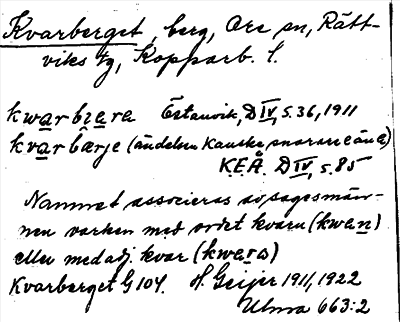 Kvarberget, berg, Ore sn, Rätt-
viks tg, Kopparb. l.
kwarbɪɛra Östanvik, D IV, s. 36, 1911
kvarbærje (ändelsen kanske snarare än e)
KEÅ. D IV, s. 85
Namnet associeras av sagesmän-
nen varken med ordet kvarn (kwan)
eller med adj. kvar (kwara)
Kvarberget G 104. H. Geijer 1911, 1922
Ulma 663:2